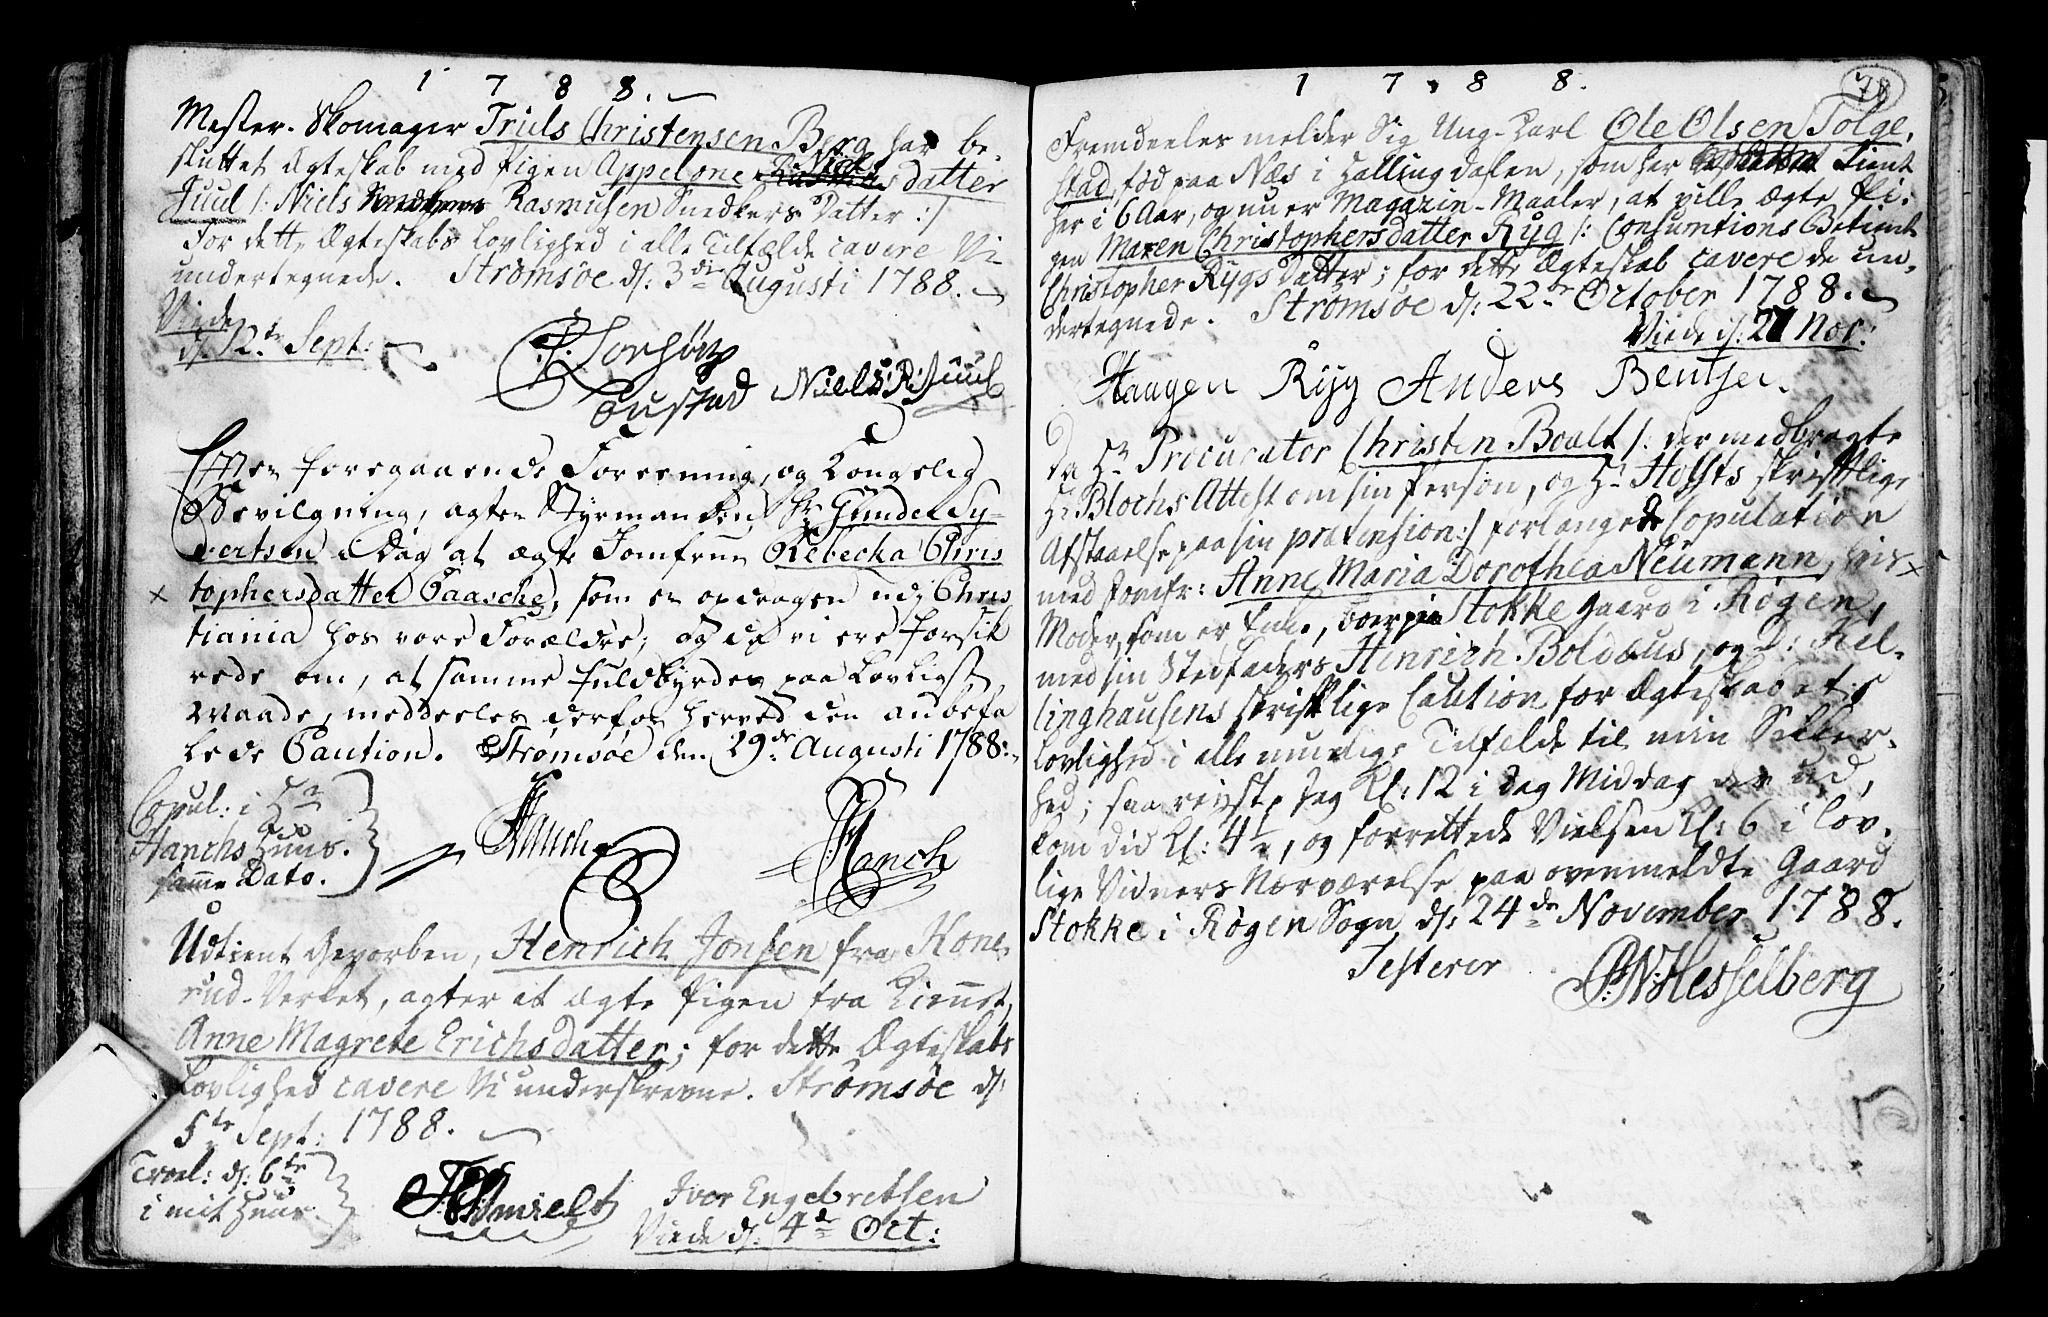 1788.
Mester-Skomager Truls Christensen Berg har be-
sluttet Ægteskab med Pigen Appelone Niels datter
Juul /: Niels Rasmusen Snedkers Datter :/
For dette Ægteskabs Lovlighed i alle Tilfælde cavere Vi
undertegnede. Strømsøe d: 3die Augusti 1788.
Viede
d: 12te Sept:
Niels R: Juul
Efter foregaaende Foreening, og Kongelig
Bevilgning, agter Styrmanden Hr Gunder Sy-
vertsen i Dag at ægte Jomfrue Rebecka Chris
tophersdatter Paasche, som er opdragen udj Chris
tiania hos vore Forældre; og da vi ere forsik
rede om, at samme fuldbyrdes paa Lovligst
Maade, meddeeles derfor herved den anbefa
lede Caution. Strømsøe den 29de Augusti 1788.
Copul: i Hr
Hanchs Huus.
samme Dato.
Hanch
Udtient Gevorben, Henrich Jonsen fra Hone-
rud-Verket, agter at ægte Pigen fra
Anne Magrete Erichsdatter; for dette Ægteskabs
Lovlighed cavere Vi underskrevne. Strømsøe d:
5te Sept: 1788.
Trol: d: 6te
i mit Huus.
Iver Engebretsen
Viede d: 4de Oct:
1788.
78
Fremdeeles melder sig Ung-Karl Ole Olsen Tolge-
stad, fød paa Næs i Hallingdalen, som her tient
her i 6 Aar, og nu er Magazin-Maaler, at ville ægte Pi-
gen Maren Christophersdatter Ryg /: Consumtions Betient
Christopher Rygs Datter; for dette Ægteskab cavere de un-
dertegnede. Strømsøe d: 22de October 1788.
Viede d: 27 Nov:
Haagen Ryg Anders Bentsen.
Da Hr Procurator Christen Boalt /: der medbragte
Hr Blochs Attest om sin Person, og Hr Holsts skriftlige
Afstaaelse paa sin prætension :/ forlangede Copulation
med Jomfr: Anne Maria Dorothea Neumann, vis
Moder, som er Enke, boer paa Stokke Gaard i Røgen,
med sin Stedfaders Henrich Boldæus, og D: Kel-
linghausens skriftlige Caution for Ægteskabets
Lovlighed i alle muelige Tilfælde til min Sikker-
hed; saa reyste Jeg Kl: 12 i Dag Middag der ud,
kom did Kl: 4½, og forrettede Vielsen Kl: 6 i lov-
lige Vidners Nærværelse paa ovenmeldte Gaard
Stokke i Røgen Sogn d: 24de November 1788.
Testerer P: N: Hesselberg